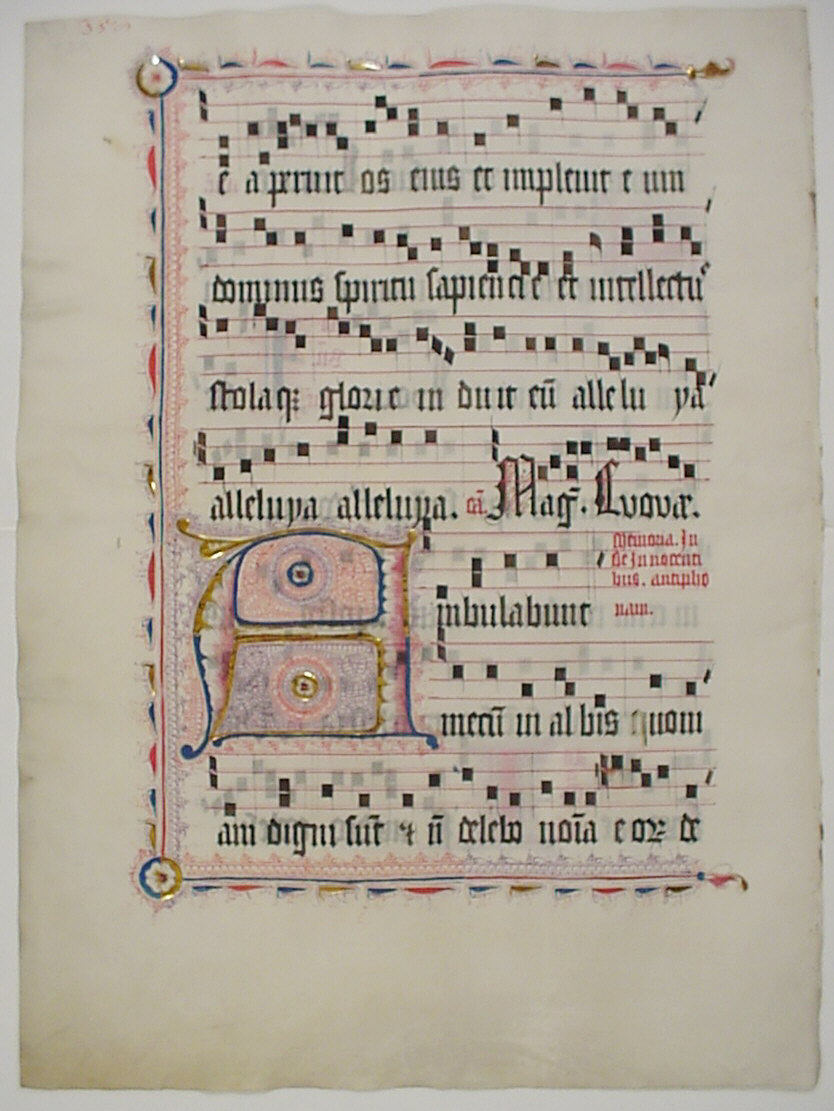 e aperuit os eius et impleuit eum
dominus spiritu sapiencie et intellectu
stolaqꝫ glorie induit eū alleluya
alleluya alleluya. cā. Mag̅. Euovae.
Memoria. In
de Innocenti
bus. antipho
nam.
Ambulabunt
mecū in albis quoni
am digni sūt ⁊ n̄ delebo noīa eoꝝ de